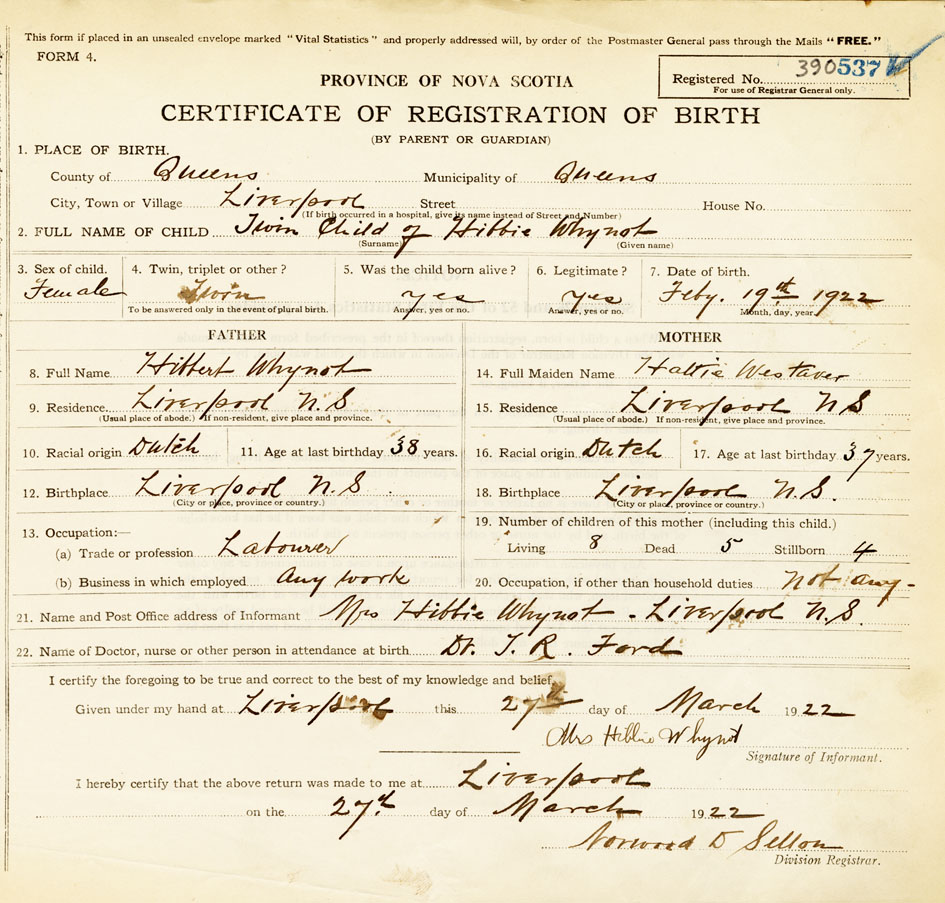 This form if placed in an unsealed envelope marked "Vital Statistics" and properly addressed will, by order of the Postmaster General pass through the Mails "FREE."
FORM 4.
Registered No. 390537
For use of Registrar General only.
PROVINCE OF NOVA SCOTIA
CERTIFICATE OF REGISTRATION OF BIRTH
(BY PARENT OR GUARDIAN)
1. PLACE OF BIRTH.
County of Queens Municipality of Queens
City, Town or Village Liverpool Street House No.
(If birth occurred in a hospital, give its name instead of Street and Number)
2. FULL NAME OF CHILD Twin Child of Hibbie Whynot
(Surname) (Given name)
3. Sex of child. 4. Twin, triplet or other? 5. Was the child born alive? 6. Legitimate? 7. Date of birth.
Female Twin yes yes Feby. 19th 1922
To be answered only in the event of plural birth. Answer, yes or no. Answer, yes or no. Month, day, year.
FATHER MOTHER
8. Full Name Hibbert Whynot 14. Full Maiden Name Hattie Westaver
9. Residence Liverpool N.S 15. Residence Liverpool NS
(Usual place of abode.) If non-resident, give place and province. (Usual place of abode.) If non-resident, give place and province.
10. Racial origin Dutch 11. Age at last birthday 38 years. 16. Racial origin Dutch 17. Age at last birthday 37 years.
12. Birthplace Liverpool N.S. 18. Birthplace Liverpool N.S.
(City or place, province or country.) (City or place, province or country.)
13. Occupation:— 19. Number of children of this mother (including this child.)
(a) Trade or profession Labourer Living 8 Dead 5 Stillborn 4
(b) Business in which employed Any work 20. Occupation, if other than household duties Not any -
21. Name and Post Office address of Informant Mrs Hibbie Whynot - Liverpool N.S.
22. Name of Doctor, nurse or other person in attendance at birth Dr. T. R. Ford
I certify the foregoing to be true and correct to the best of my knowledge and belief.
Given under my hand at Liverpool this 27th day of March 1922
Mrs Hibbie Whynot
Signature of Informant.
I hereby certify that the above return was made to me at Liverpool
on the 27th day of March 1922
Norwood D Sellon
Division Registrar.